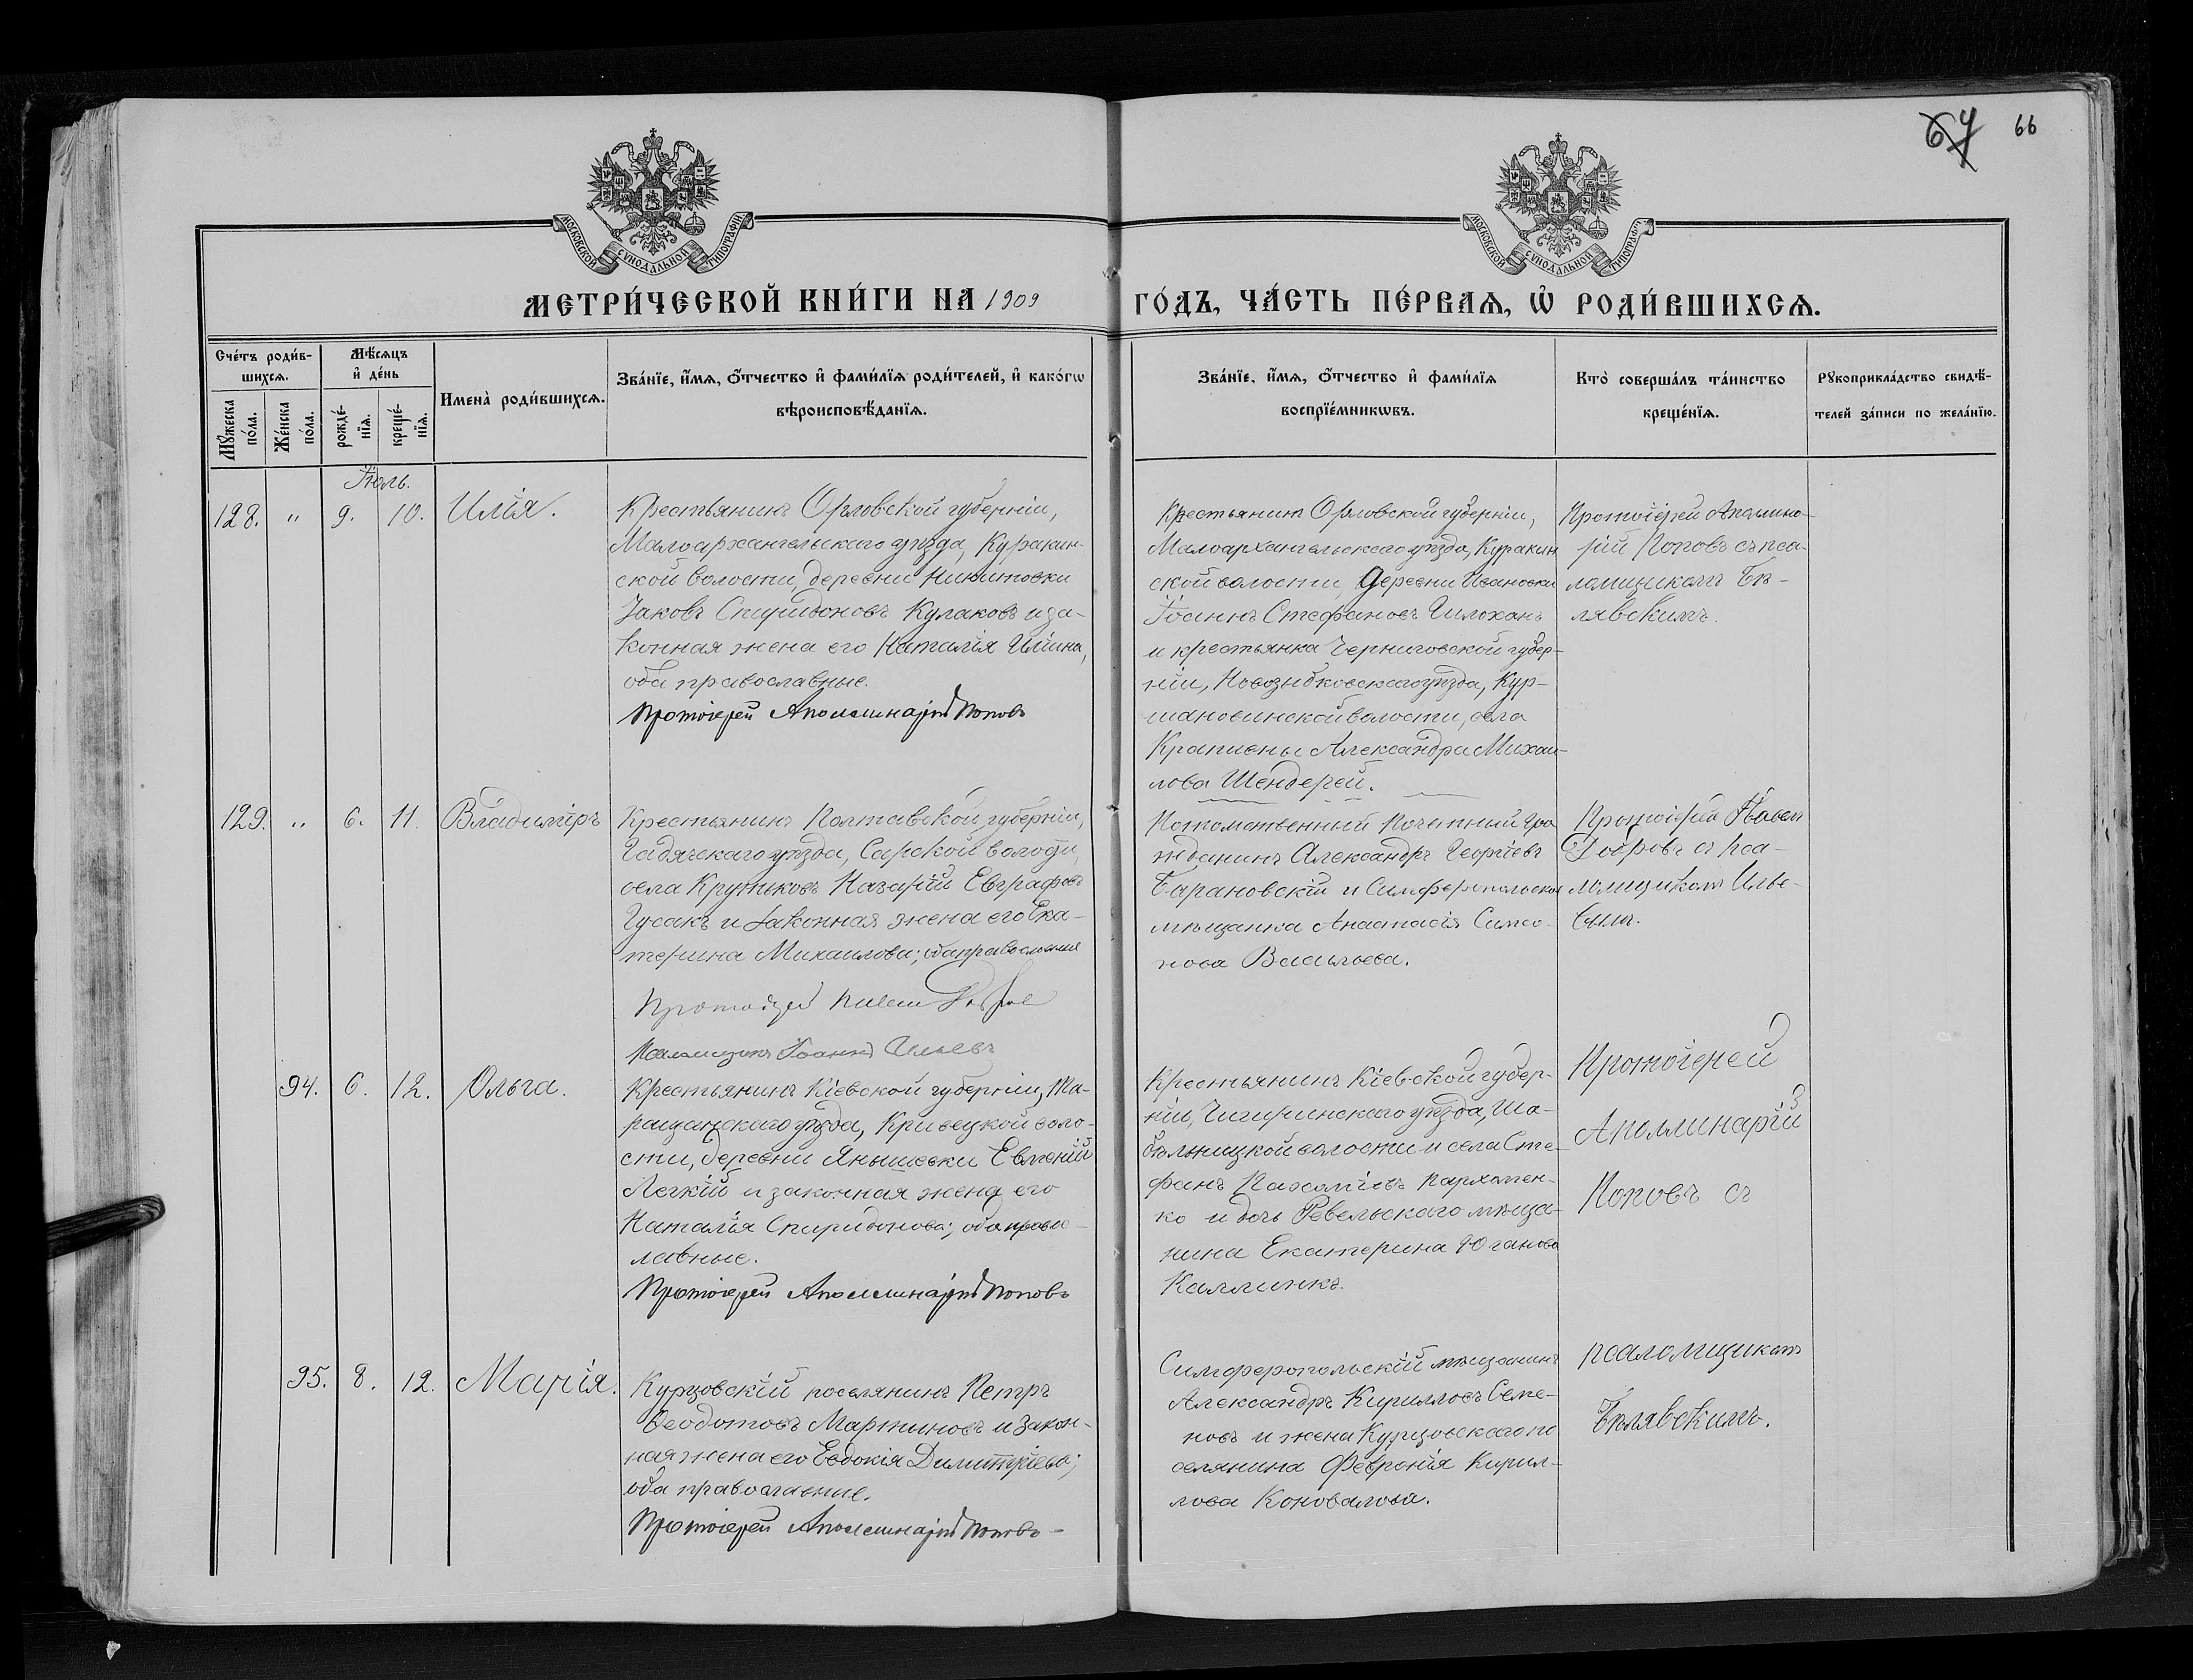 67 66
МОСКОВСКОЙ СѴНОДАЛЬНОЙ ТИПОГРАФІИ
МОСКОВСКОЙ СѴНОДАЛЬНОЙ ТИПОГРАФІИ
МЕТРИ́ЧЕСКОЙ КНИ́ГИ НА 1909 ГО́ДЪ, ЧА́СТЬ ПЕ́РВАѦ, Ѡ҆ РОДИ́ВШИХСѦ.
Сче́тъ роди́в-
шихсѧ.
Мꙋ́жеска по́ла.
Же́нска по́ла.
Мѣ́сѧцъ и҆ де́нь
рожде́-
нїѧ.
креще́-
нїѧ.
Имена̀ роди́вшихсѧ.
Зва́нїе, и҆́мѧ, ѻ҆́тчество и҆ фами́лїѧ роди́телей, и҆ како́гѡ
вѣроисповѣ́данїѧ.
Зва́нїе, и҆́мѧ, ѻ҆́тчество и҆ фами́лїѧ
воспрїе́мникѡвъ.
Кто̀ соверша́лъ та́инство
креще́нїѧ.
Рꙋкоприкла́дство свидѣ́-
телей за́писи по жела́нїю.
Іюль.
128. " 9. 10. Илія.
Крестьянинъ Орловской губерніи,
Малоархангельскаго уѣзда, Куракин-
ской волости, деревни Никитовки
Іаковъ Спиридоновъ Кулаковъ и за-
конная жена его Наталія Иліина,
оба православные.
Протоіерей Аполлинарій Поповъ
Крестьянинъ Орловской губерніи,
Малоархангельскаго уѣзда, Куракин
ской волости, деревни Ивановки
Іоаннъ Стефановъ
и крестьянка Черниговской губер-
ніи, Новозыбковскаго уѣзда, Кур-
шановинской волости, села
Крапивны Александра Михаи-
лова Шендерей.
Протоіерей Аполлина-
рій Поповъ съ пса-
ломщикомъ Бѣ-
лявскимъ.
129. " 6. 11. Владиміръ
Крестьянинъ Полтавской губерніи,
Гадячскаго уѣзда, Сарской волости,
села Крутьковъ Назарій Евграфовъ
Гусакъ и законная жена его Ека-
терина Михаилова; оба православные
Протоіерей Павелъ
Псаломщикъ Іоаннъ Ильевъ
Потомственный Почетный гра
жданинъ Александръ Георгіевъ
Барановскій и Симферопольская
мѣщанка Анастасія Симео-
нова Васильева.
Протоіерей Павелъ
съ пса-
ломщикомъ Илье-
вымъ.
94. 6. 12. Ольга.
Крестьянинъ Кіевской губерніи, Та-
ращанскаго уѣзда, Кривецкой воло-
сти, деревни Янышевки Евгеній
Легкій и законная жена его
Наталія Спиридонова; оба правос-
лавные.
Протоіерей Аполлинарій Поповъ
Крестьянинъ Кіевской губер-
ніи, Чигиринскаго уѣзда, Ша-
бельницкой волости и села Сте-
фанъ Пахоміевъ Пархомен-
ко и дочь Ревельскаго мѣща-
нина Екатерина Юганова
Каллинкъ.
Протоіерей
Аполлинарій
Поповъ съ
95. 8. 12. Марія.
Курцовскій поселянинъ Петръ
Ѳеодотовъ Мартиновъ и закон-
ная жена его Евдокія Димитріева;
оба православные.
Протоіерей Аполлинарій Поповъ
Симферопольскій мѣщанинъ
Александръ Кирилловъ Семе-
новъ и жена Курцовскаго по
селянина Февронія Кирил-
лова Коновалова.
псаломщикомъ
Бѣлявскимъ.